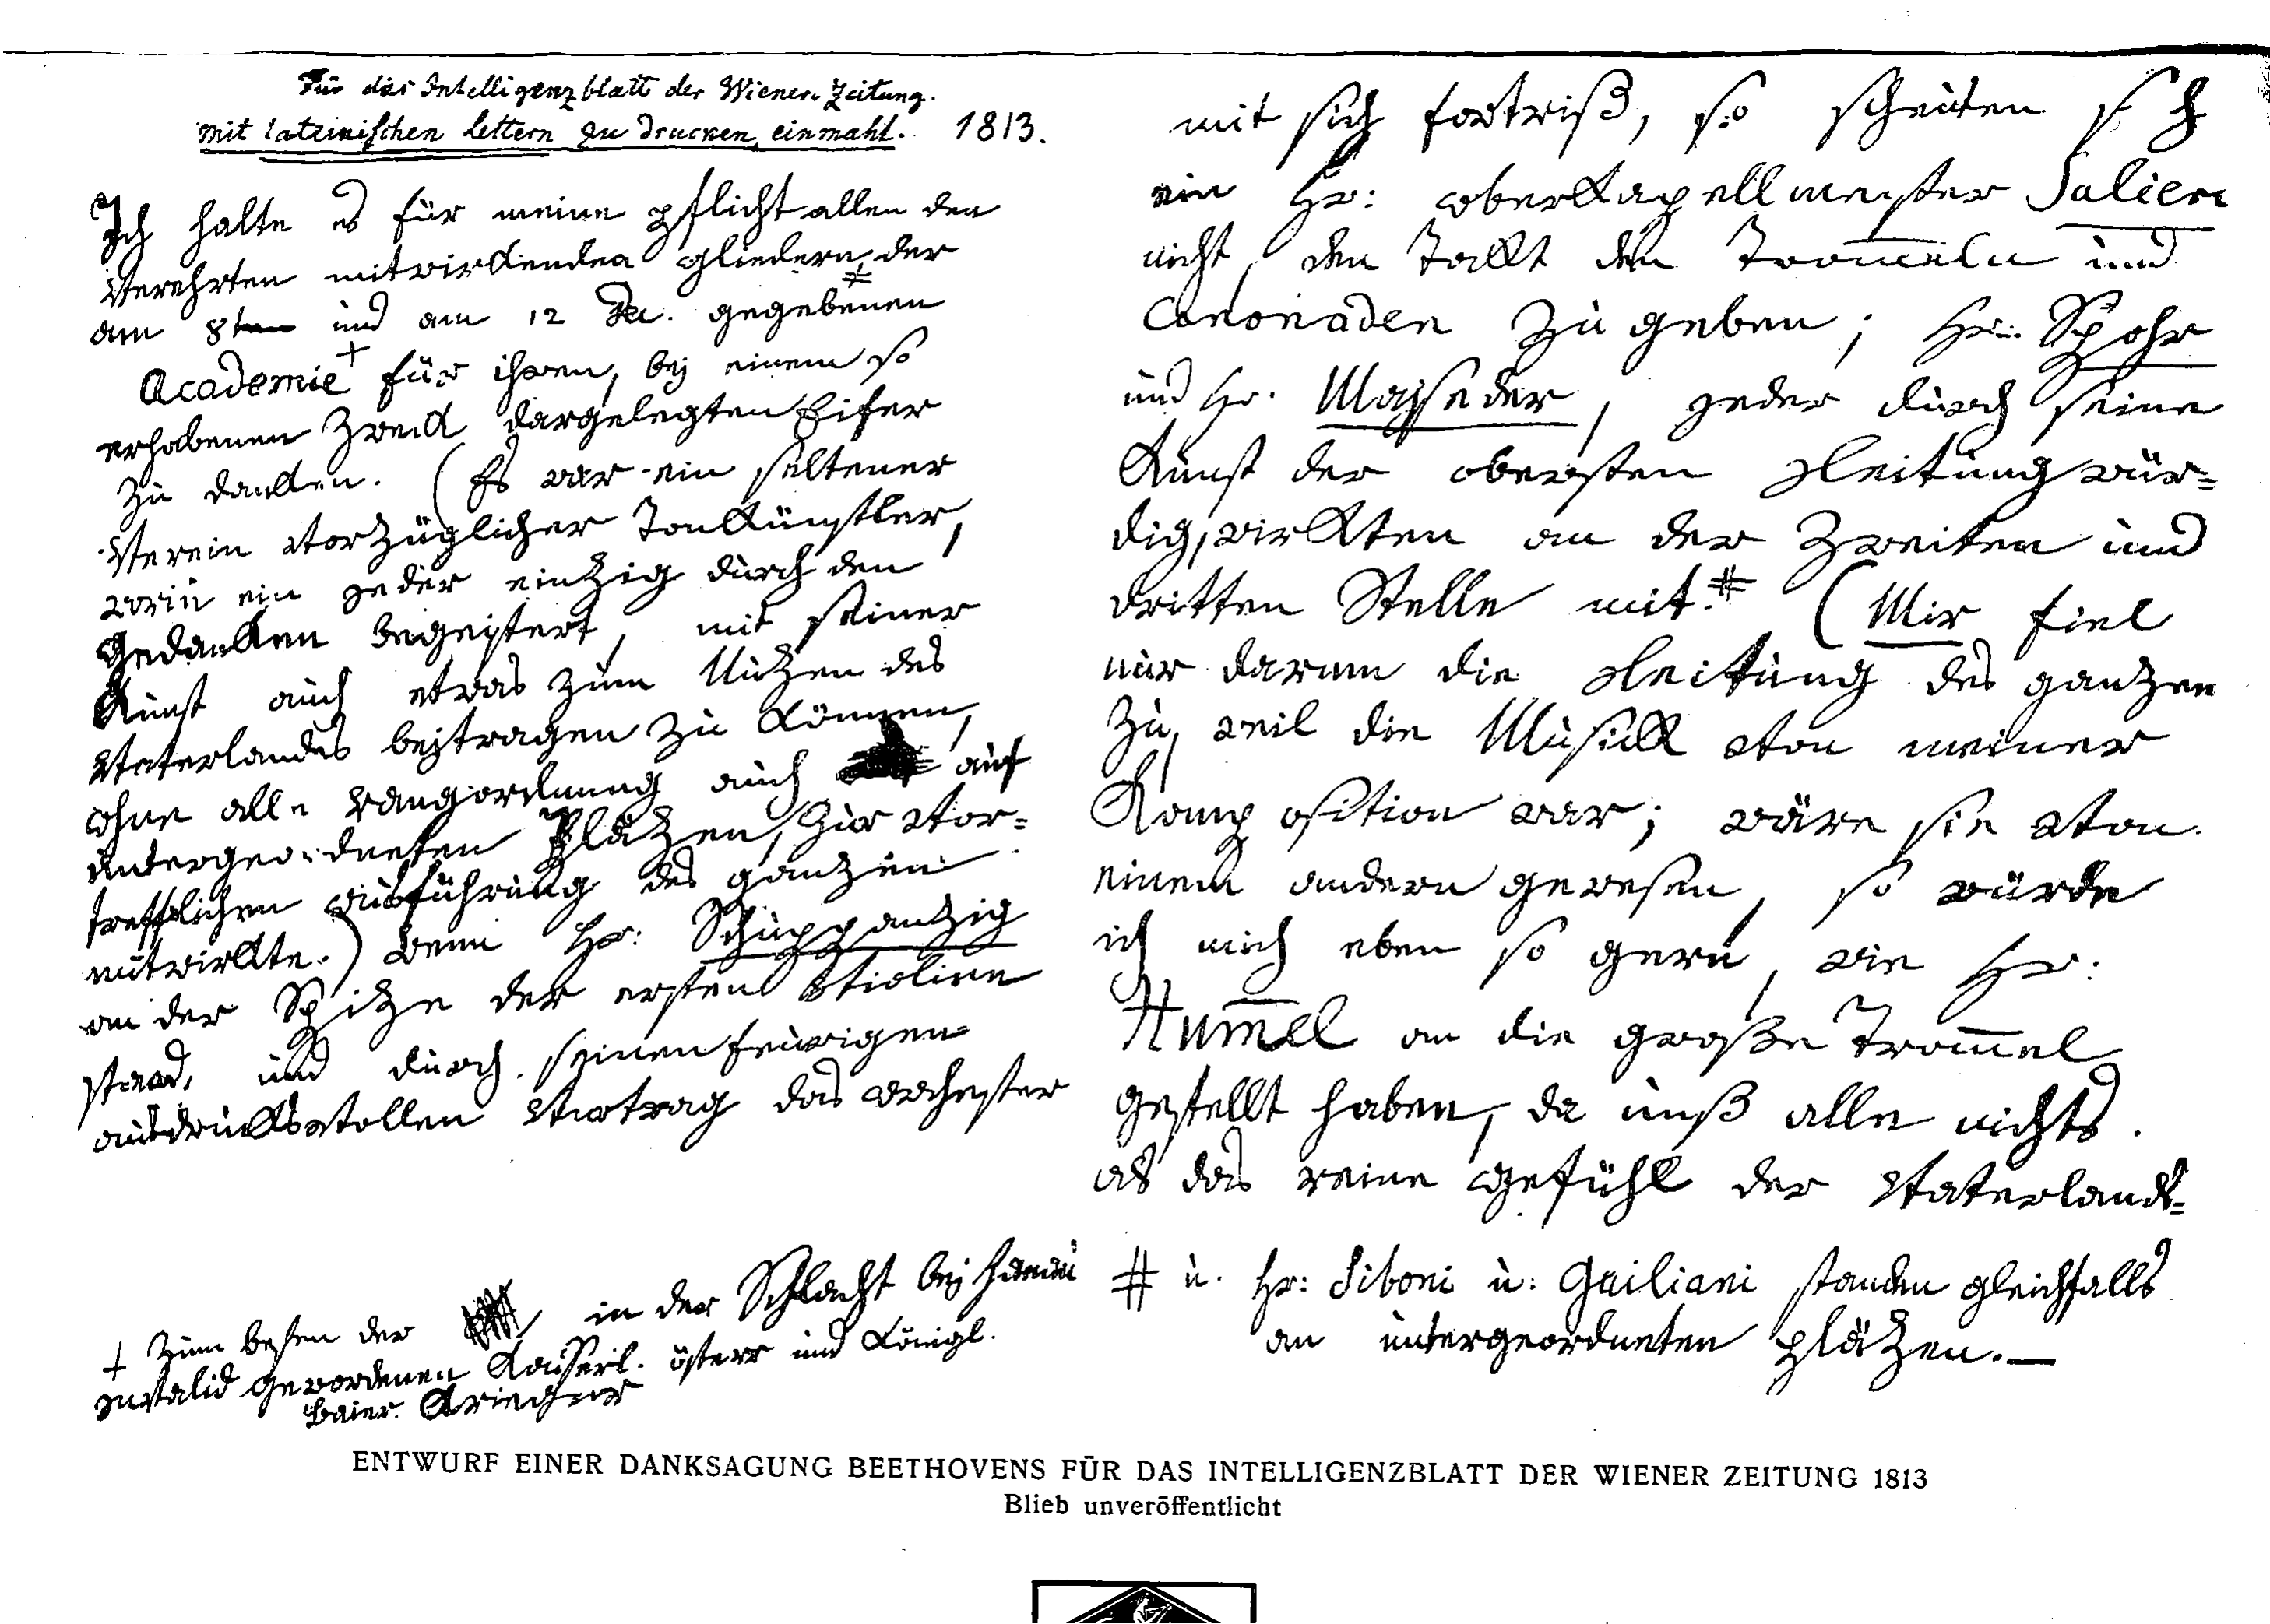 Für das Intelligenzblatt der Wiener-Zeitung.
mit lateinischen lettern zu drucken, einmahl. 1813.
Ich halte es für meine pflicht allen den
Verehrten mitwirkenden gliedern der
am 8ten und am 12 Dec. gegebenen #
Academie + für ihren, bej einem so
erhabenen Zweck dargelegten Eifer
zu danken. (Es war ein seltener
Verein vorzüglicher Tonkünstler,
worin ein jeder einzig durch den
gedanken begeistert, mit seiner
Kunst auch etwas zum Nutzen des
Vaterlandes bejtragen zu können,
ohne alle rangordnung auch auf
untergeordneten Plätzen, zur Vor=
trefflichen ausführung des ganzen
mitwirkte.) Wenn Hr: Schuppanzig
an der Spitze der ersten Violine
stand, und durch seinen feurigen
ausdrucksvollen Vortrag das orchester
+ Zum besten der in der Schlacht bej Hanau
invalid gewordenen Kaiserl. österr und Königl.
Baier. Krieger
mit sich fortriß, so scheuten sich
ein Hr: oberkapellmeister Salieri
nicht, den Takt den Trom̅eln und
Canonaden zu geben; Hr: Spohr
und Hr. Mayseder, jeder durch seine
Kunst der obersten Leitung wür=
dig, wirkten an der Zweiten und
dritten Stelle mit.# (Mir fiel
nur darum die Leitung des ganzen
zu, weil die Musick von meiner
Komposition war; wäre sie von
einem andern gewesen, so würde
ich mich eben so gern, wie Hr:
Hum̅el an die große Trom̅el
gestellt haben, da unß alle nichts
als das reine gefühl der Vaterlands=
# u. Hr: Siboni u: Guiliani standen gleichfalls
an untergeordneten plätzen.—
ENTWURF EINER DANKSAGUNG BEETHOVENS FÜR DAS INTELLIGENZBLATT DER WIENER ZEITUNG 1813
Blieb unveröffentlicht